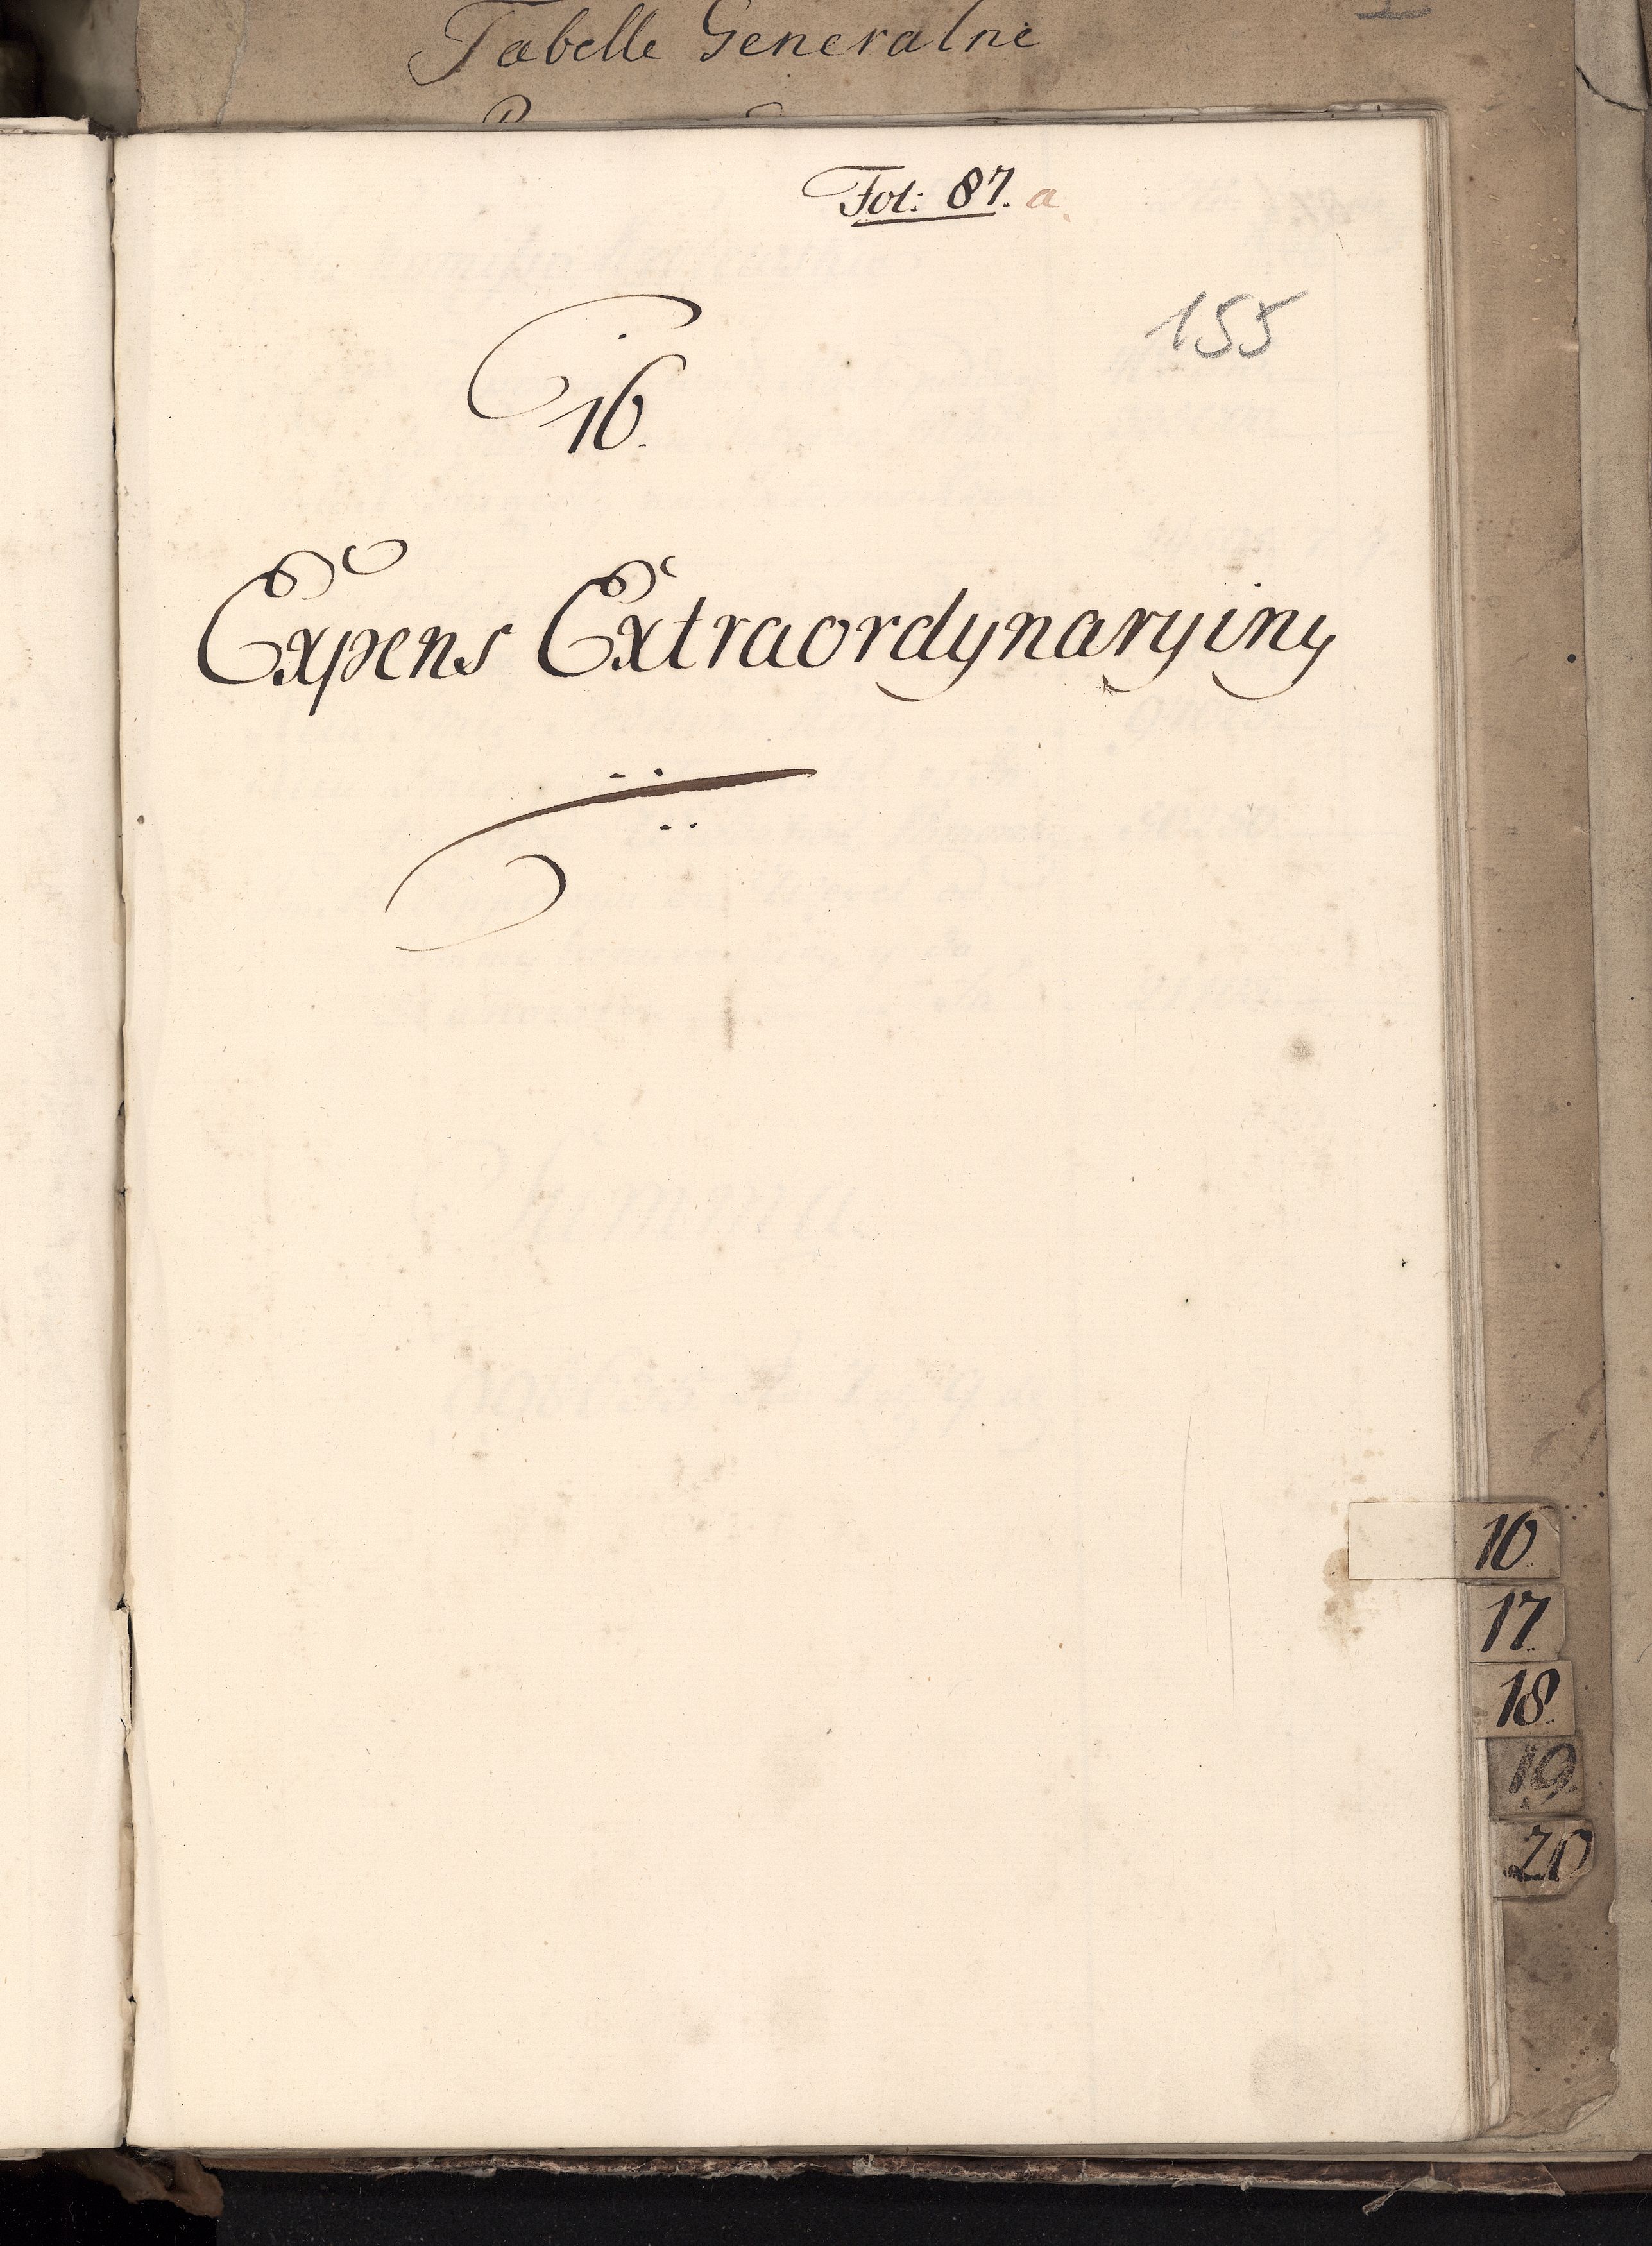 Tabelle Generalne
Fol: 87. a.
155
16.
Expens Extraordynaryiny
16.
17.
18.
19.
20